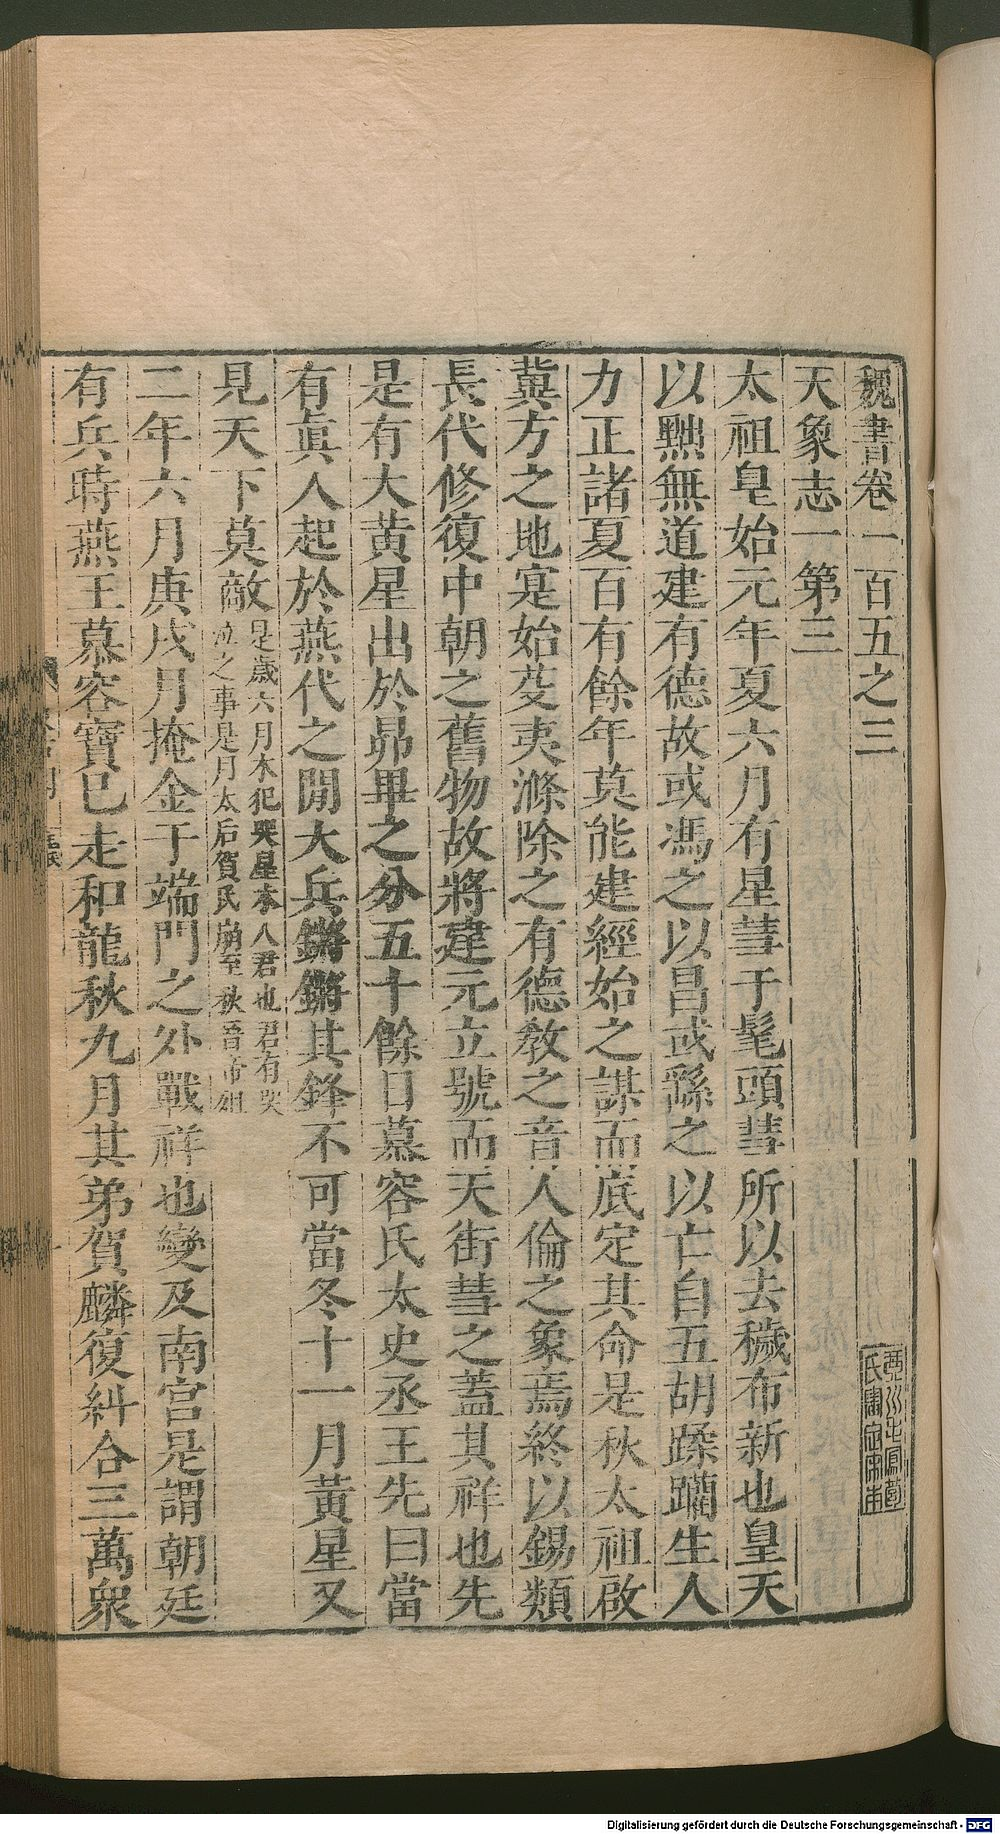 魏書卷一百五之三
天象志一第三
太祖皇始元年夏六月有星彗于髦頭彗所以去穢布新也皇天
以黜無道建有德故或馮之以昌或繇之以亡自五胡蹂躪生人
力正諸夏百有餘年莫能建經始之謀而底定其命是秋太祖啟
冀方之地寔始芟夷滌除之有德教之音人倫之象焉終以錫類
長代修復中朝之舊物故將建元立號而天街彗之蓋其祥也先
是有大黄星出於昴畢之分五十餘日慕容氏太史丞王先曰當
有真人起於燕代之間大兵鏘鏘其鋒不可當冬十一月黃星又
見天下莫敵
是歲六月木犯哭星木人君也君有哭
泣之事是月太后賀氏崩至秋晉帝殂
二年六月庚戌月掩金于端門之外戰祥也變及南宮是謂朝廷
有兵時燕王慕容寶已走和龍秋九月其弟賀麟復糾合三萬衆
Digitalisierung gefördert durch die Deutsche Forschungsgemeinschaft - DFG